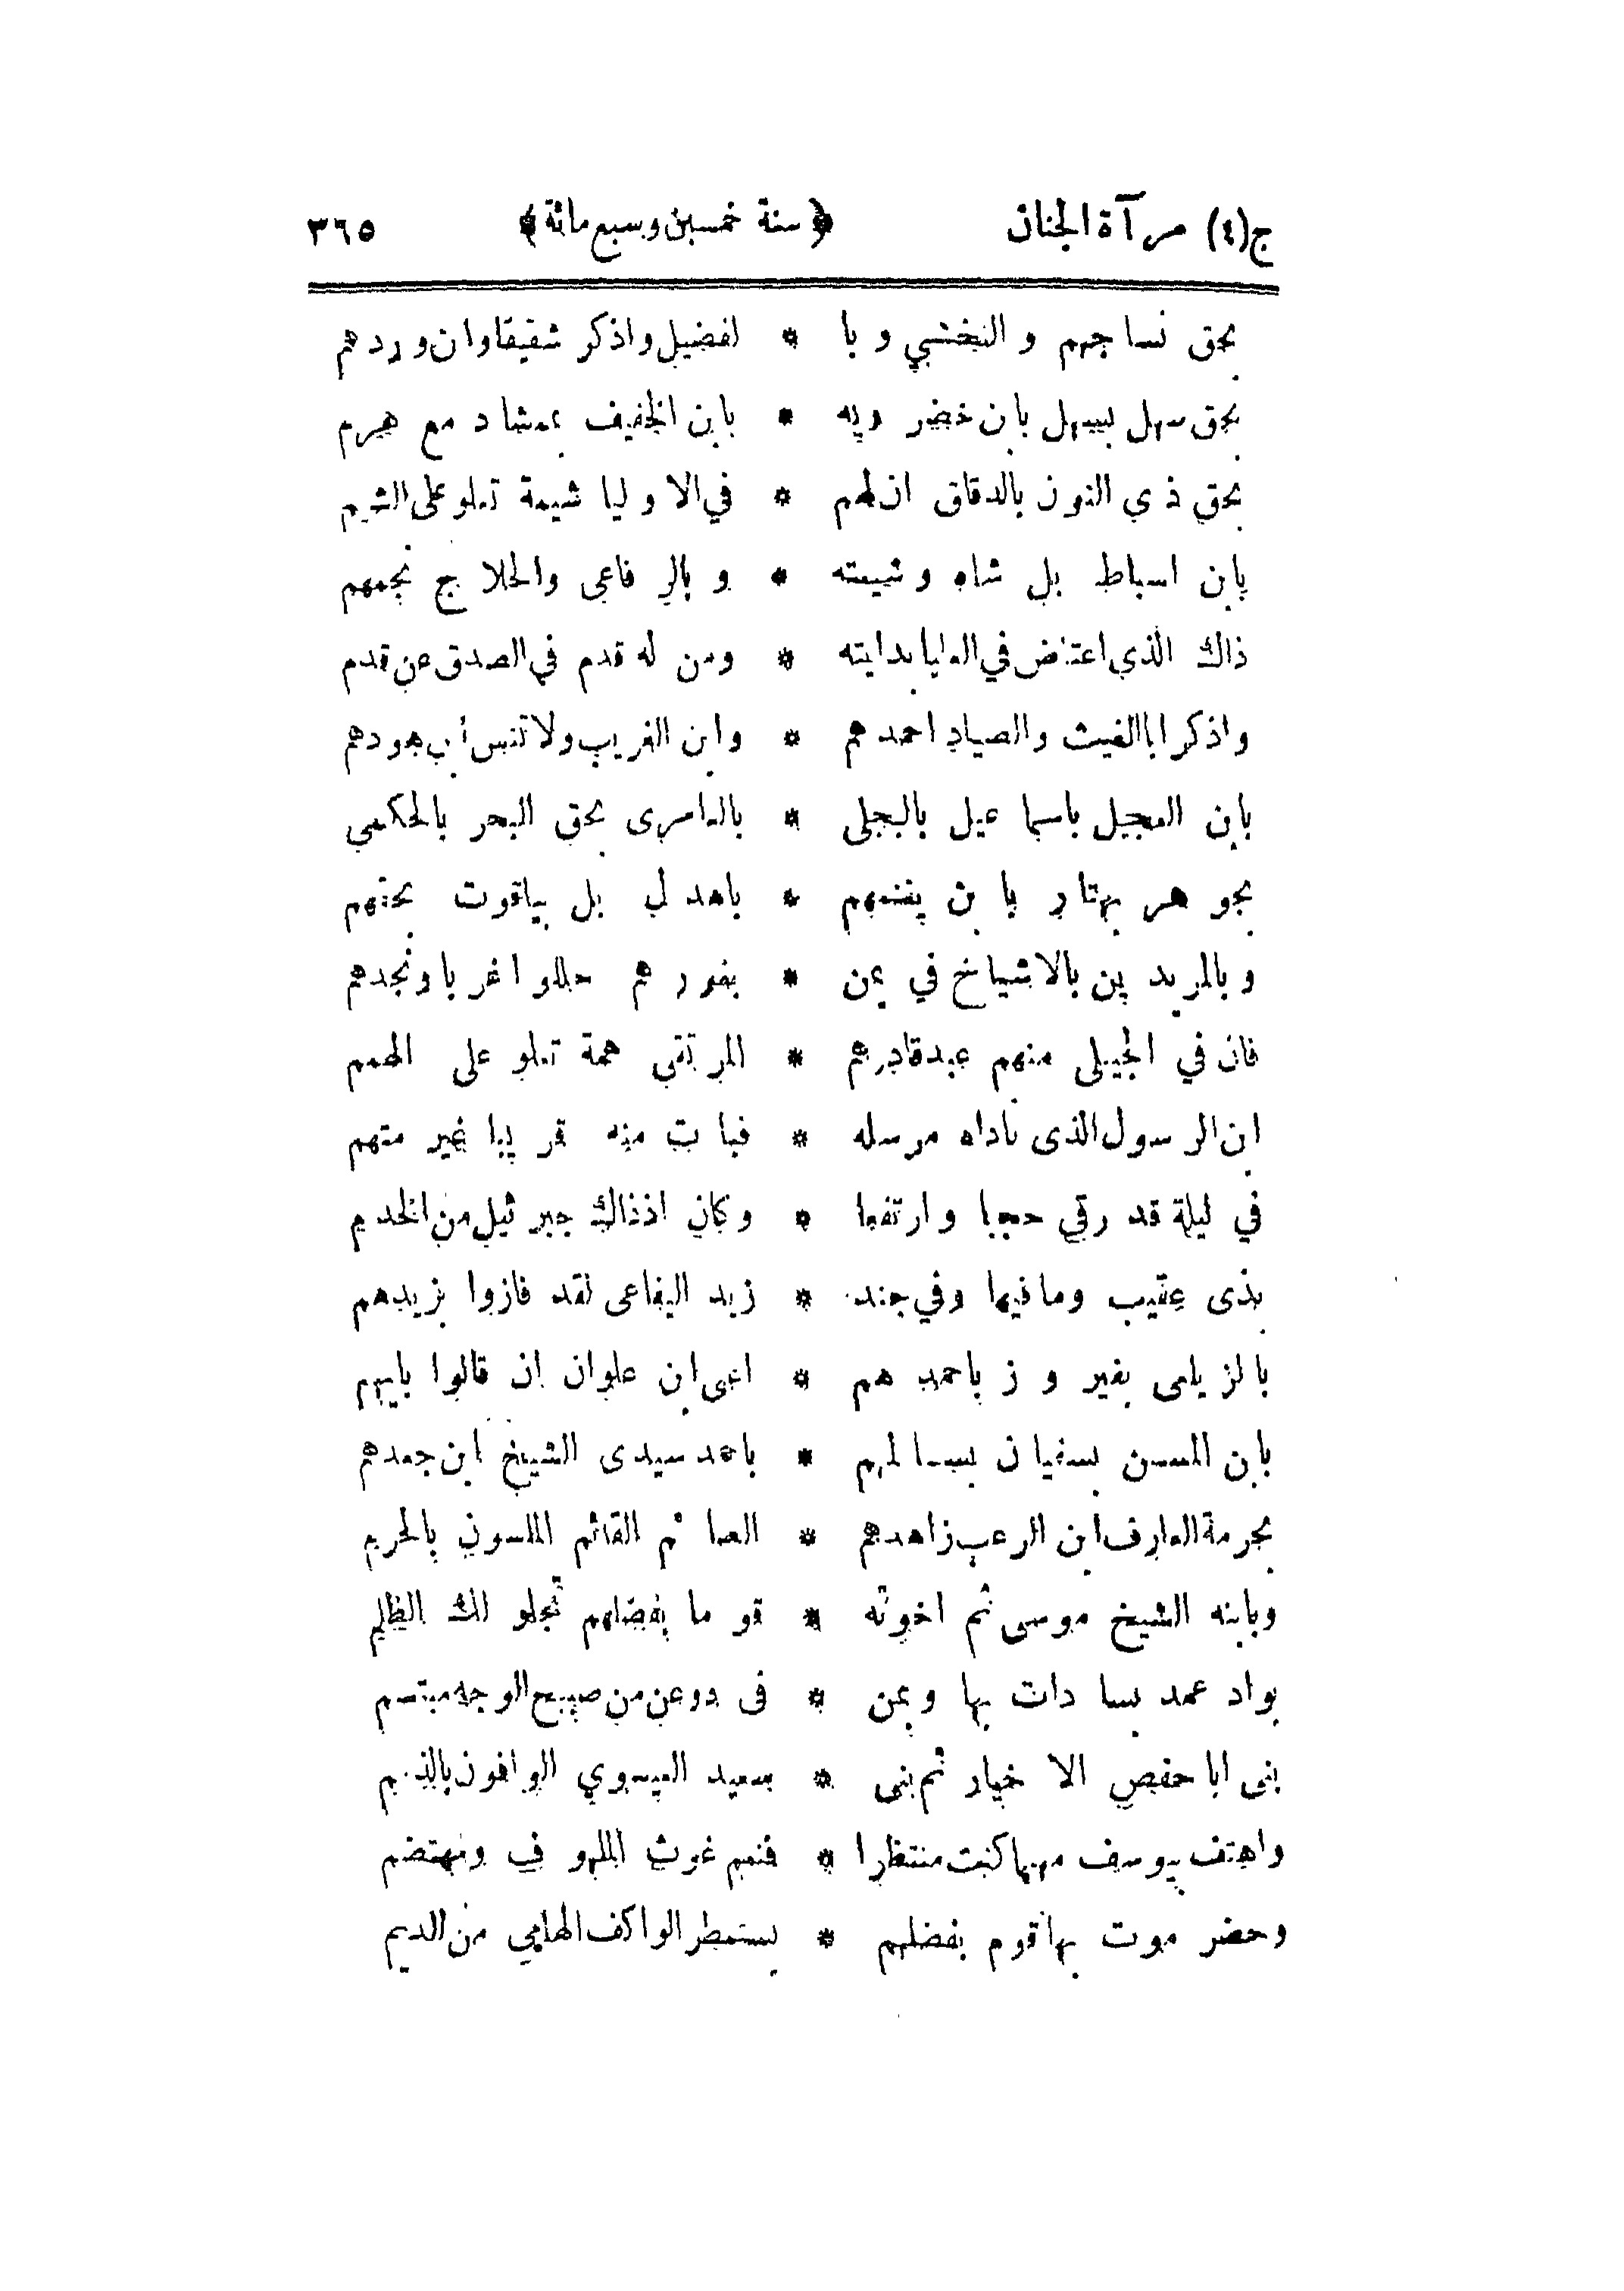 ج(٤) مرآة الجنان ﴿سنة خمسين وسبع مائة﴾ ٣٦٥
بحق نساجهم و النخشبي و با * لفضيل واذكر شقيقا وان وردهم
بحق سهل بسهل بابن خضرويه * بابن الخفيف بممشاد مع هرم
بحق ذي النون بالدقاق ان لهم * في الاوليا شيمة تعلو على الشيم
بابن اسباط بل شاه وشيمته * و بالرفاعى والحلاج نجمهم
ذاك الذى اعتاض في العليا بدايته * ومن له قدم في الصدق عن قدم
واذكر اباالغيث والصياد احمدهم * وابن الغريب ولا تنس أبى هودهم
بابن العجيل باسماعيل بالبجلى * بالعامرى بحق البحر بالحكمي
بجوهر بهتار بابن يغنمهم * باهدل بل بياقوت بحقهم
وبالمريدين بالاشياخ في يمن * بغورهم حللوا غربا ونجدهم
فان في الجيلى منهم عبدقادرهم * المرتقى همة تعلو على الهمم
ابن الرسول الذى ناداه مرسله * فبات منه قريبا غير متهم
في ليلة قد رقى حجبا وارتفعا * وكان اذذاك جبرئيل من الخدم
بذى عقيب ومافيها وفي جند * زيد اليفاعى لقد فازوا بزيدهم
بالزيلعى بفيروز باحمدهم * اعى ابن علوان ان قالوا بايهم
بابن المسن بسفيان بسالمهم * باحمد سيدى الشيخ ابن جعدهم
بحرمة العارف ابن الرعب زاهدهم * الصائم القائم الملسون بالحرم
وبابنه الشيخ موسى ثم اخوته * قوما بفضلهم تجلو لك الظلم
بواد عمد بسادات بها وبمن * فى دوعن من صبيح الوجه مبتسم
بنى اباحفص الاخيار ثم بنى * سعيد العيسوي الوافون بالذمم
واهتف بيوسف مهما كنت منتظرا * فنعم غوث الملهوف ومهتضم
وحضر موت بها قوم بفضلهم * يستمطر الواكف الهامي من الديم